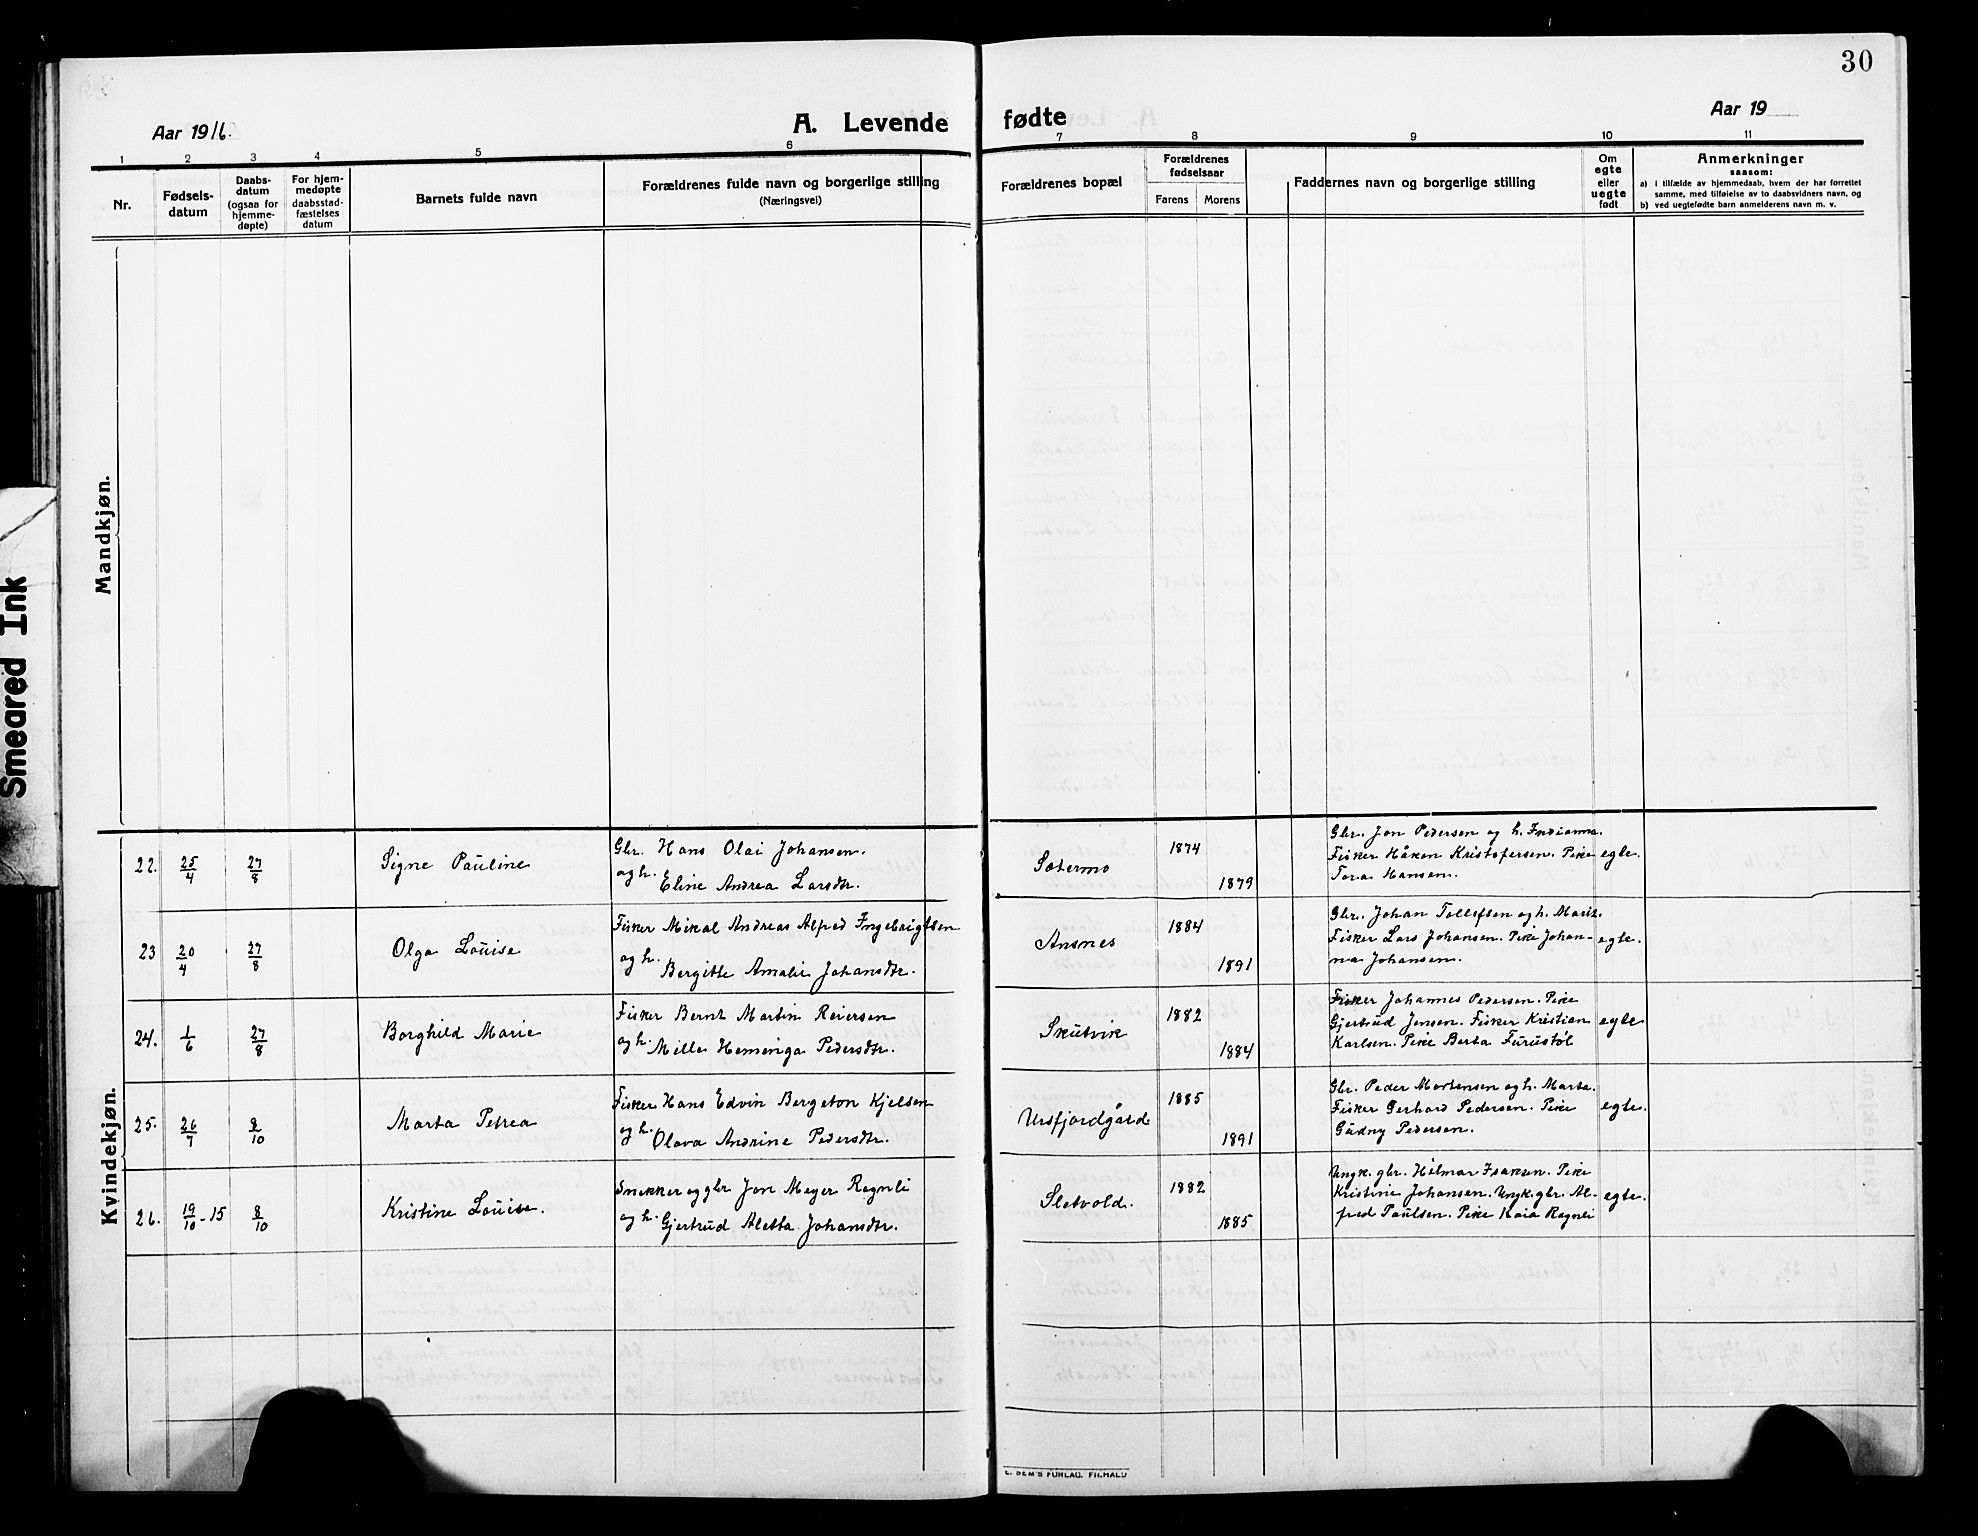 30
Aar 1916.
A. Levende fødte
Aar 19
1 2 3 4 5 6 7 8 9 10 11
Nr.
Fødsels-
datum
Daabs-
datum
(ogsaa for
hjemme-
døpte)
For hjem-
medøpte
daabsstad-
fæstelses
datum
Barnets fulde navn
Forældrenes fulde navn og borgerlige stilling
(Næringsvei)
Forældrenes bopæl
Forældrenes
fødselsaar
Farens Morens
Faddernes navn og borgerlige stilling
Om
egte
eller
uegte
født
Anmerkninger
saasom:
a) i tilfælde av hjemmedaab, hvem der har forrettet
samme, med tilføielse av to daabsvidners navn, og
b) ved uegtefødte barn anmelderens navn m. v.
Mandkjøn.
Smeared Ink
Kvindekjøn.
22. 25/4 27/8 Signe Pauline
Gbr. Hans Olai Johansen.
og h. Eline Andrea Larsdtr.
Sætermo 1874 1879
Gbr. Jon Pedersen og h. Indianna.
Fisker Håken Kristofersen. Pike
Tora Hansen.
egte.
23 20/4 27/8 Olga Louise
Fisker Mikal Andreas Alfred Ingebrigtsen
og h. Bergitte Amalie Johansdtr.
Ansnes 1884 1891
Gbr. Johan Tollefsen og h. Marit.
Fisker Lars Johansen. Pike Johan-
na Johansen.
egte.
24. 1/6 27/8 Borghild Marie
Fisker Bernt Martin Reiersen
og h. Milla Heminga Pedersdtr.
Skutvik 1882 1884
Fisker Johannes Pedersen. Pike
Gjertrud Jensen. Fisker Kristian
Karlsen. Pike Berta Furustøl
egte
25. 26/7 8/10 Marta Petrea
Fisker Hans Edvin Bergeton Kjelsen
og h. Olava Andrine Pedersdtr.
Ursfjordgård 1885 1891
Gbr. Peder Mortensen og h. Marta.
Fisker Gerhard Pedersen. Pike
Gudny Pedersen.
egte.
26. 19/10-15 8/10 Kristine Louise.
Snekker og gbr Jon Meyer Ragnli
og h. Gjertrud Aletta Johansdtr.
Sletvold. 1882 1885
Ungk. gbr. Hilmar Isaksen. Pike
Kristine Johansen. Ungk. gbr. Al-
fred Paulsen. Pike Kaia Ragnli
egte.
E. SEM'S FORLAG. FR.HALD